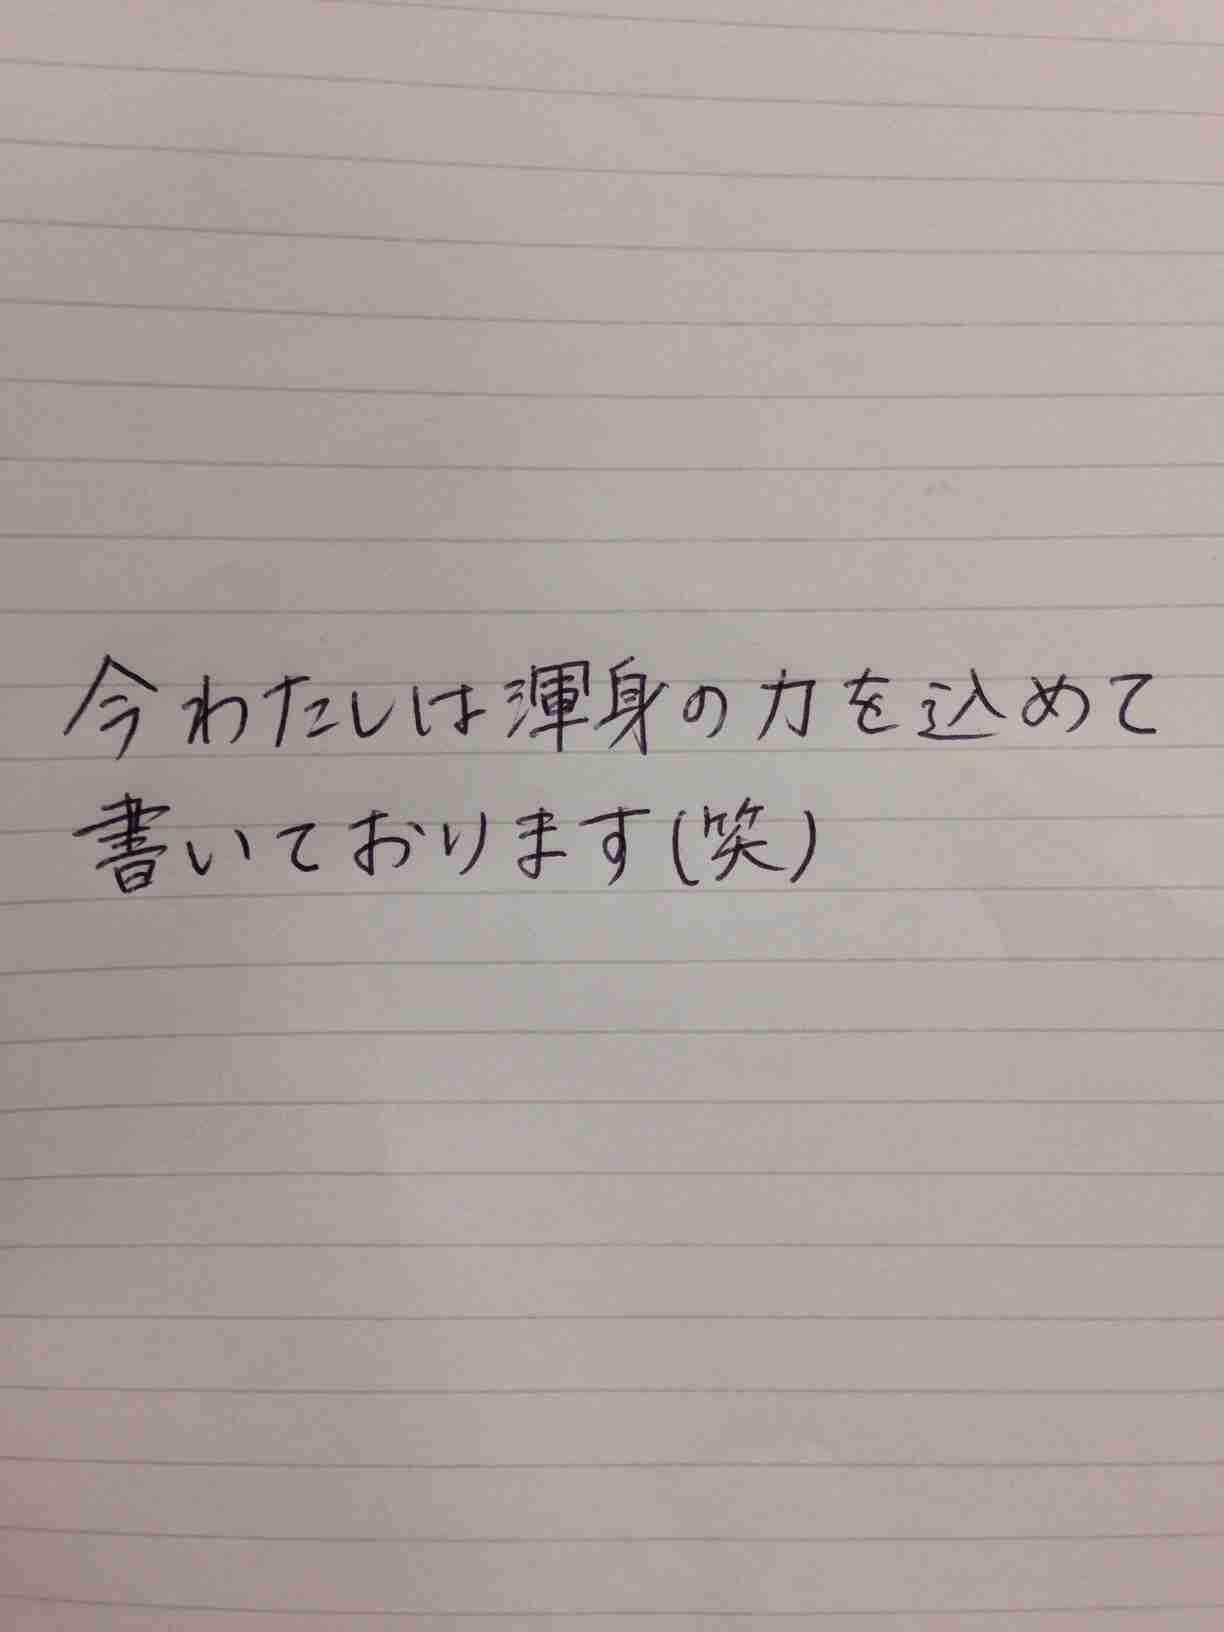 今わたしは渾身の力を込めて
書いております(笑)